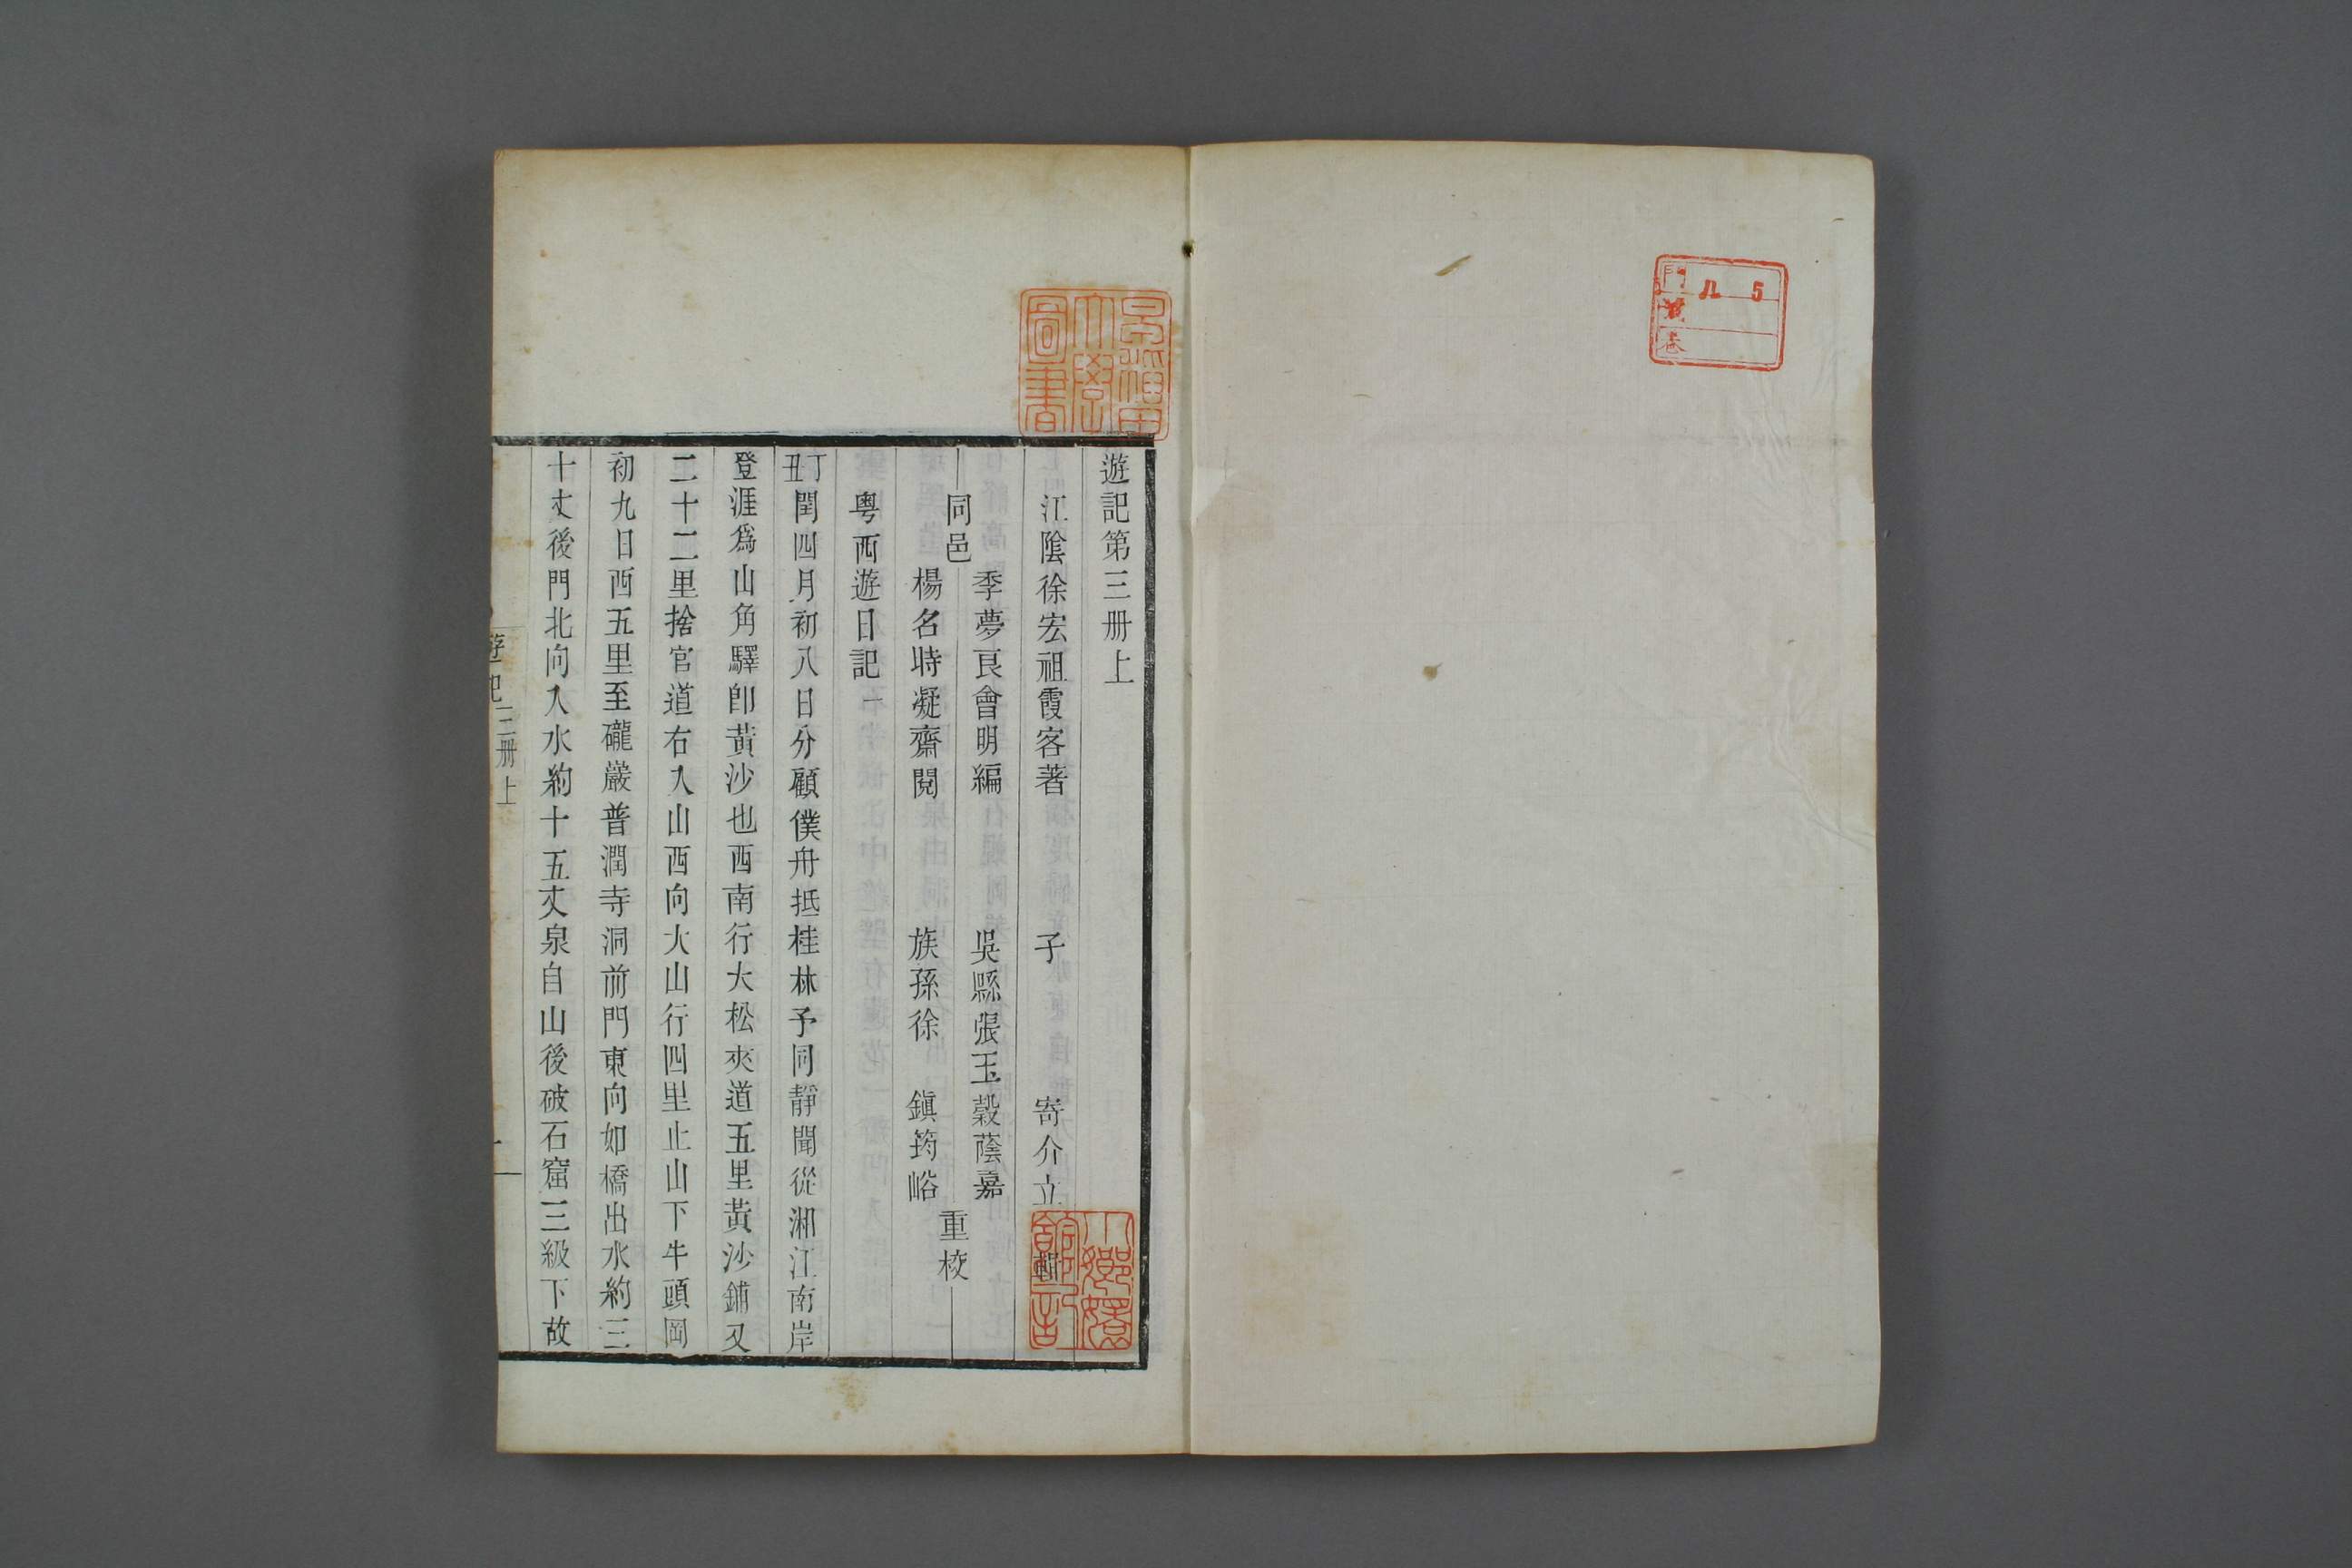 門 八 5
號
卷
早稲田
大學
圖書
遊記第三册上
江陰徐宏祖霞客著 子 寄介立輯
同邑
季夢良會明編 吳縣張玉穀蔭嘉
楊名時凝齋閱 族孫徐 鎭筠峪
重校
粤西遊日記一
丁丑閏四月初八日分顧僕舟抵桂林予同靜聞從湘江南岸
登涯爲山角驛卽黃沙也西南行大松夾道五里黃沙鋪又
二十二里捨官道右入山西向大山行四里止山下牛頭岡
初九日西五里至礲巖普潤寺洞前門東向如橋出水約三
十丈後門北向入水約十五丈泉自山後破石窟三級下故
遊記 三册上